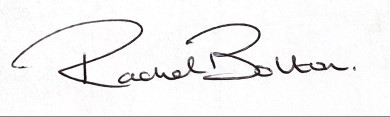 Rachel Bolton.